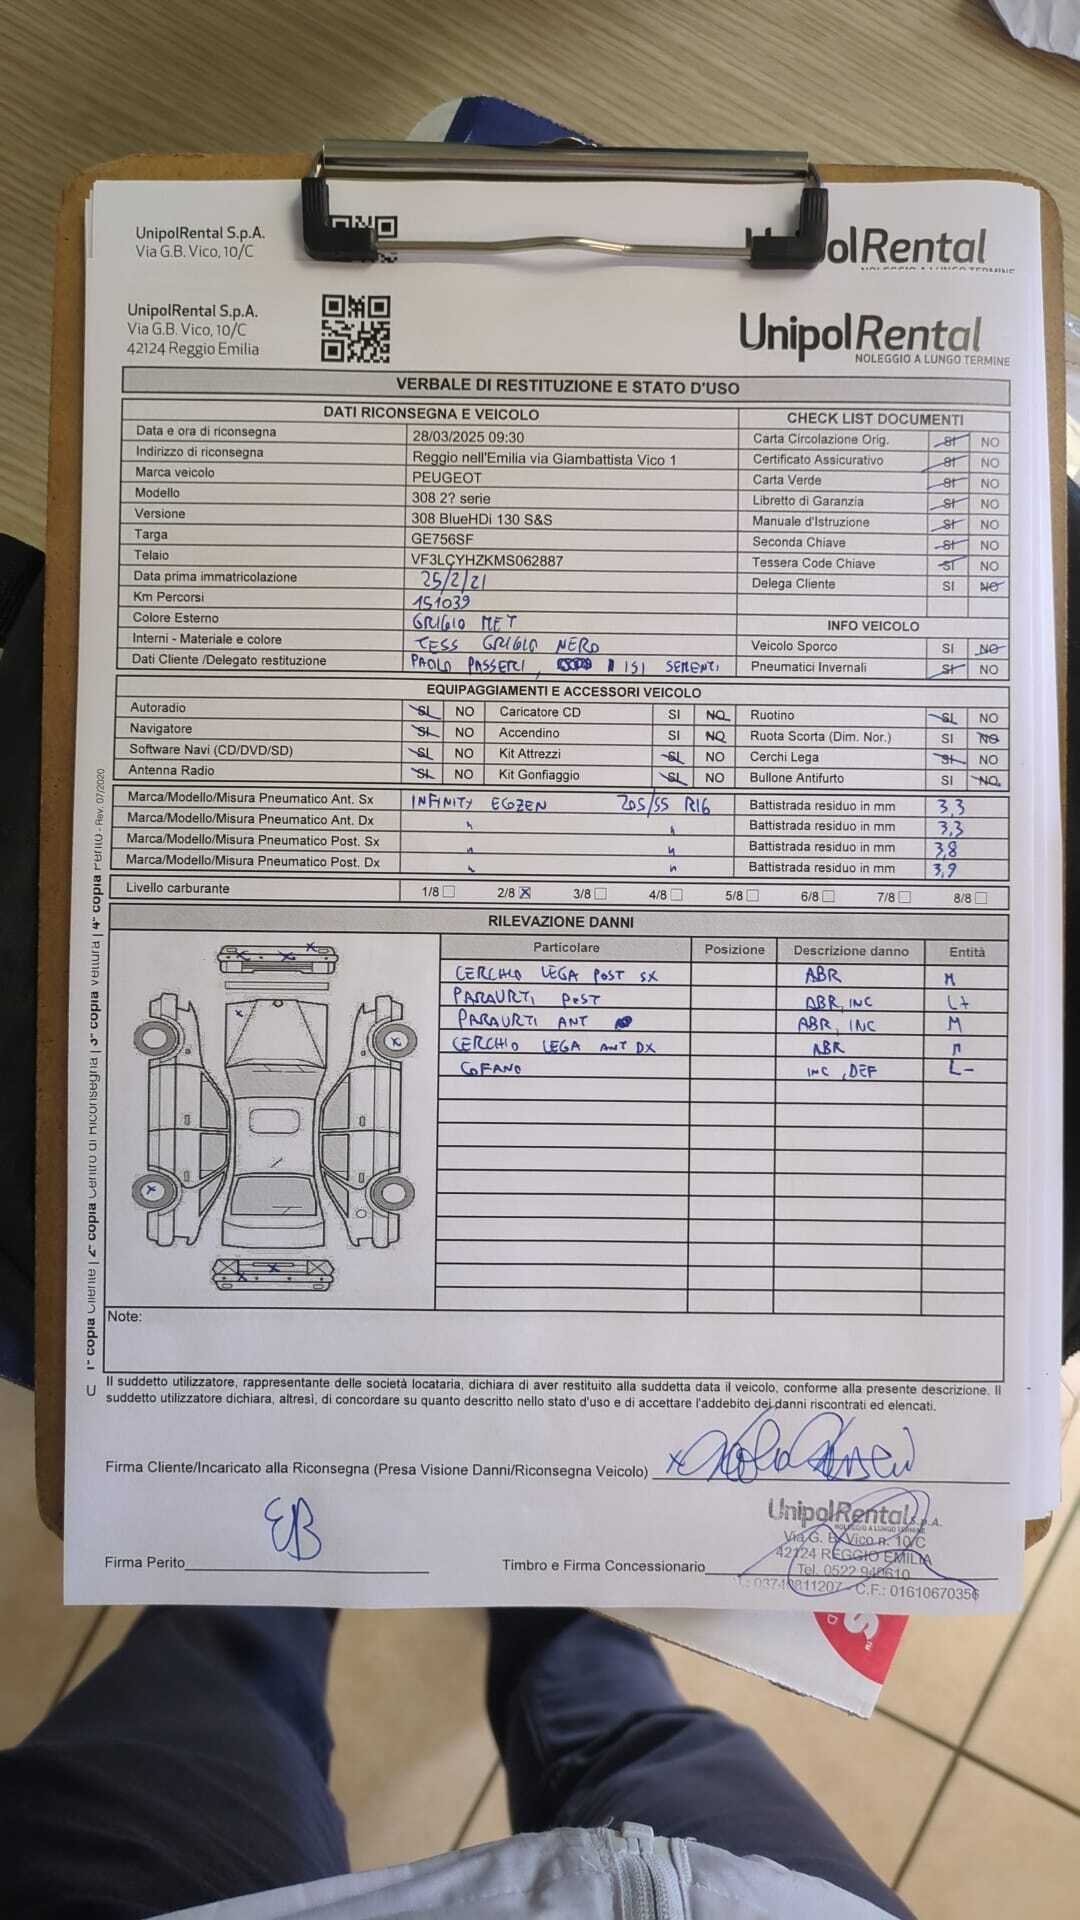 UnipolRental S.p.A.
Via G.B. Vico, 10/C
olRental
NOLEGGIO A LUNGO TERMINE
UnipolRental S.p.A.
Via G.B. Vico, 10/C
42124 Reggio Emilia
UnipolRental
NOLEGGIO A LUNGO TERMINE
VERBALE DI RESTITUZIONE E STATO D'USO
DATI RICONSEGNA E VEICOLO
Data e ora di riconsegna 28/03/2025 09:30
Indirizzo di riconsegna Reggio nell'Emilia via Giambattista Vico 1
Marca veicolo PEUGEOT
Modello 308 2? serie
Versione 308 BlueHDi 130 S&S
Targa GE756SF
Telaio VF3LCYHZKMS062887
Data prima immatricolazione 25/2/21
Km Percorsi 151039
Colore Esterno GRIGIO MET
Interni - Materiale e colore TESS GRIGIO NERO
Dati Cliente /Delegato restituzione PAOLO PASSERI, ISI SEMENTI
CHECK LIST DOCUMENTI
Carta Circolazione Orig. SI NO
Certificato Assicurativo SI NO
Carta Verde SI NO
Libretto di Garanzia SI NO
Manuale d'Istruzione SI NO
Seconda Chiave SI NO
Tessera Code Chiave SI NO
Delega Cliente SI NO
INFO VEICOLO
Veicolo Sporco SI NO
Pneumatici Invernali SI NO
EQUIPAGGIAMENTI E ACCESSORI VEICOLO
Autoradio SI NO Caricatore CD SI NO Ruotino SI NO
Navigatore SI NO Accendino SI NO Ruota Scorta (Dim. Nor.) SI NO
Software Navi (CD/DVD/SD) SI NO Kit Attrezzi SI NO Cerchi Lega SI NO
Antenna Radio SI NO Kit Gonfiaggio SI NO Bullone Antifurto SI NO
Marca/Modello/Misura Pneumatico Ant. Sx INFINITY ECOZEN 205/55 R16 Battistrada residuo in mm 3,3
Marca/Modello/Misura Pneumatico Ant. Dx " " Battistrada residuo in mm 3,3
Marca/Modello/Misura Pneumatico Post. Sx " " Battistrada residuo in mm 3,8
Marca/Modello/Misura Pneumatico Post. Dx " " Battistrada residuo in mm 3,9
Livello carburante 1/8 2/8 X 3/8 4/8 5/8 6/8 7/8 8/8
RILEVAZIONE DANNI
Particolare Posizione Descrizione danno Entità
CERCHIO LEGA POST SX ABR M
PARAURTI POST ABR, INC L+
PARAURTI ANT ABR, INC M
CERCHIO LEGA ANT DX ABR M
COFANO INC, DEF L-
Note:
Il suddetto utilizzatore, rappresentante delle società locataria, dichiara di aver restituito alla suddetta data il veicolo, conforme alla presente descrizione. Il
suddetto utilizzatore dichiara, altresì, di concordare su quanto descritto nello stato d'uso e di accettare l'addebito dei danni riscontrati ed elencati.
Firma Cliente/Incaricato alla Riconsegna (Presa Visione Danni/Riconsegna Veicolo) x
Firma Perito EB
Timbro e Firma Concessionario
UnipolRental S.p.A.
NOLEGGIO A LUNGO TERMINE
Via G. B. Vico n. 10/C
42124 REGGIO EMILIA
Tel. 0522 940610
03740811207 - C.F.: 01610670356
1ª copia Cliente | 2ª copia Centro di Riconsegna | 3ª copia Vettura | 4ª copia Perito - Rev. 07/2020